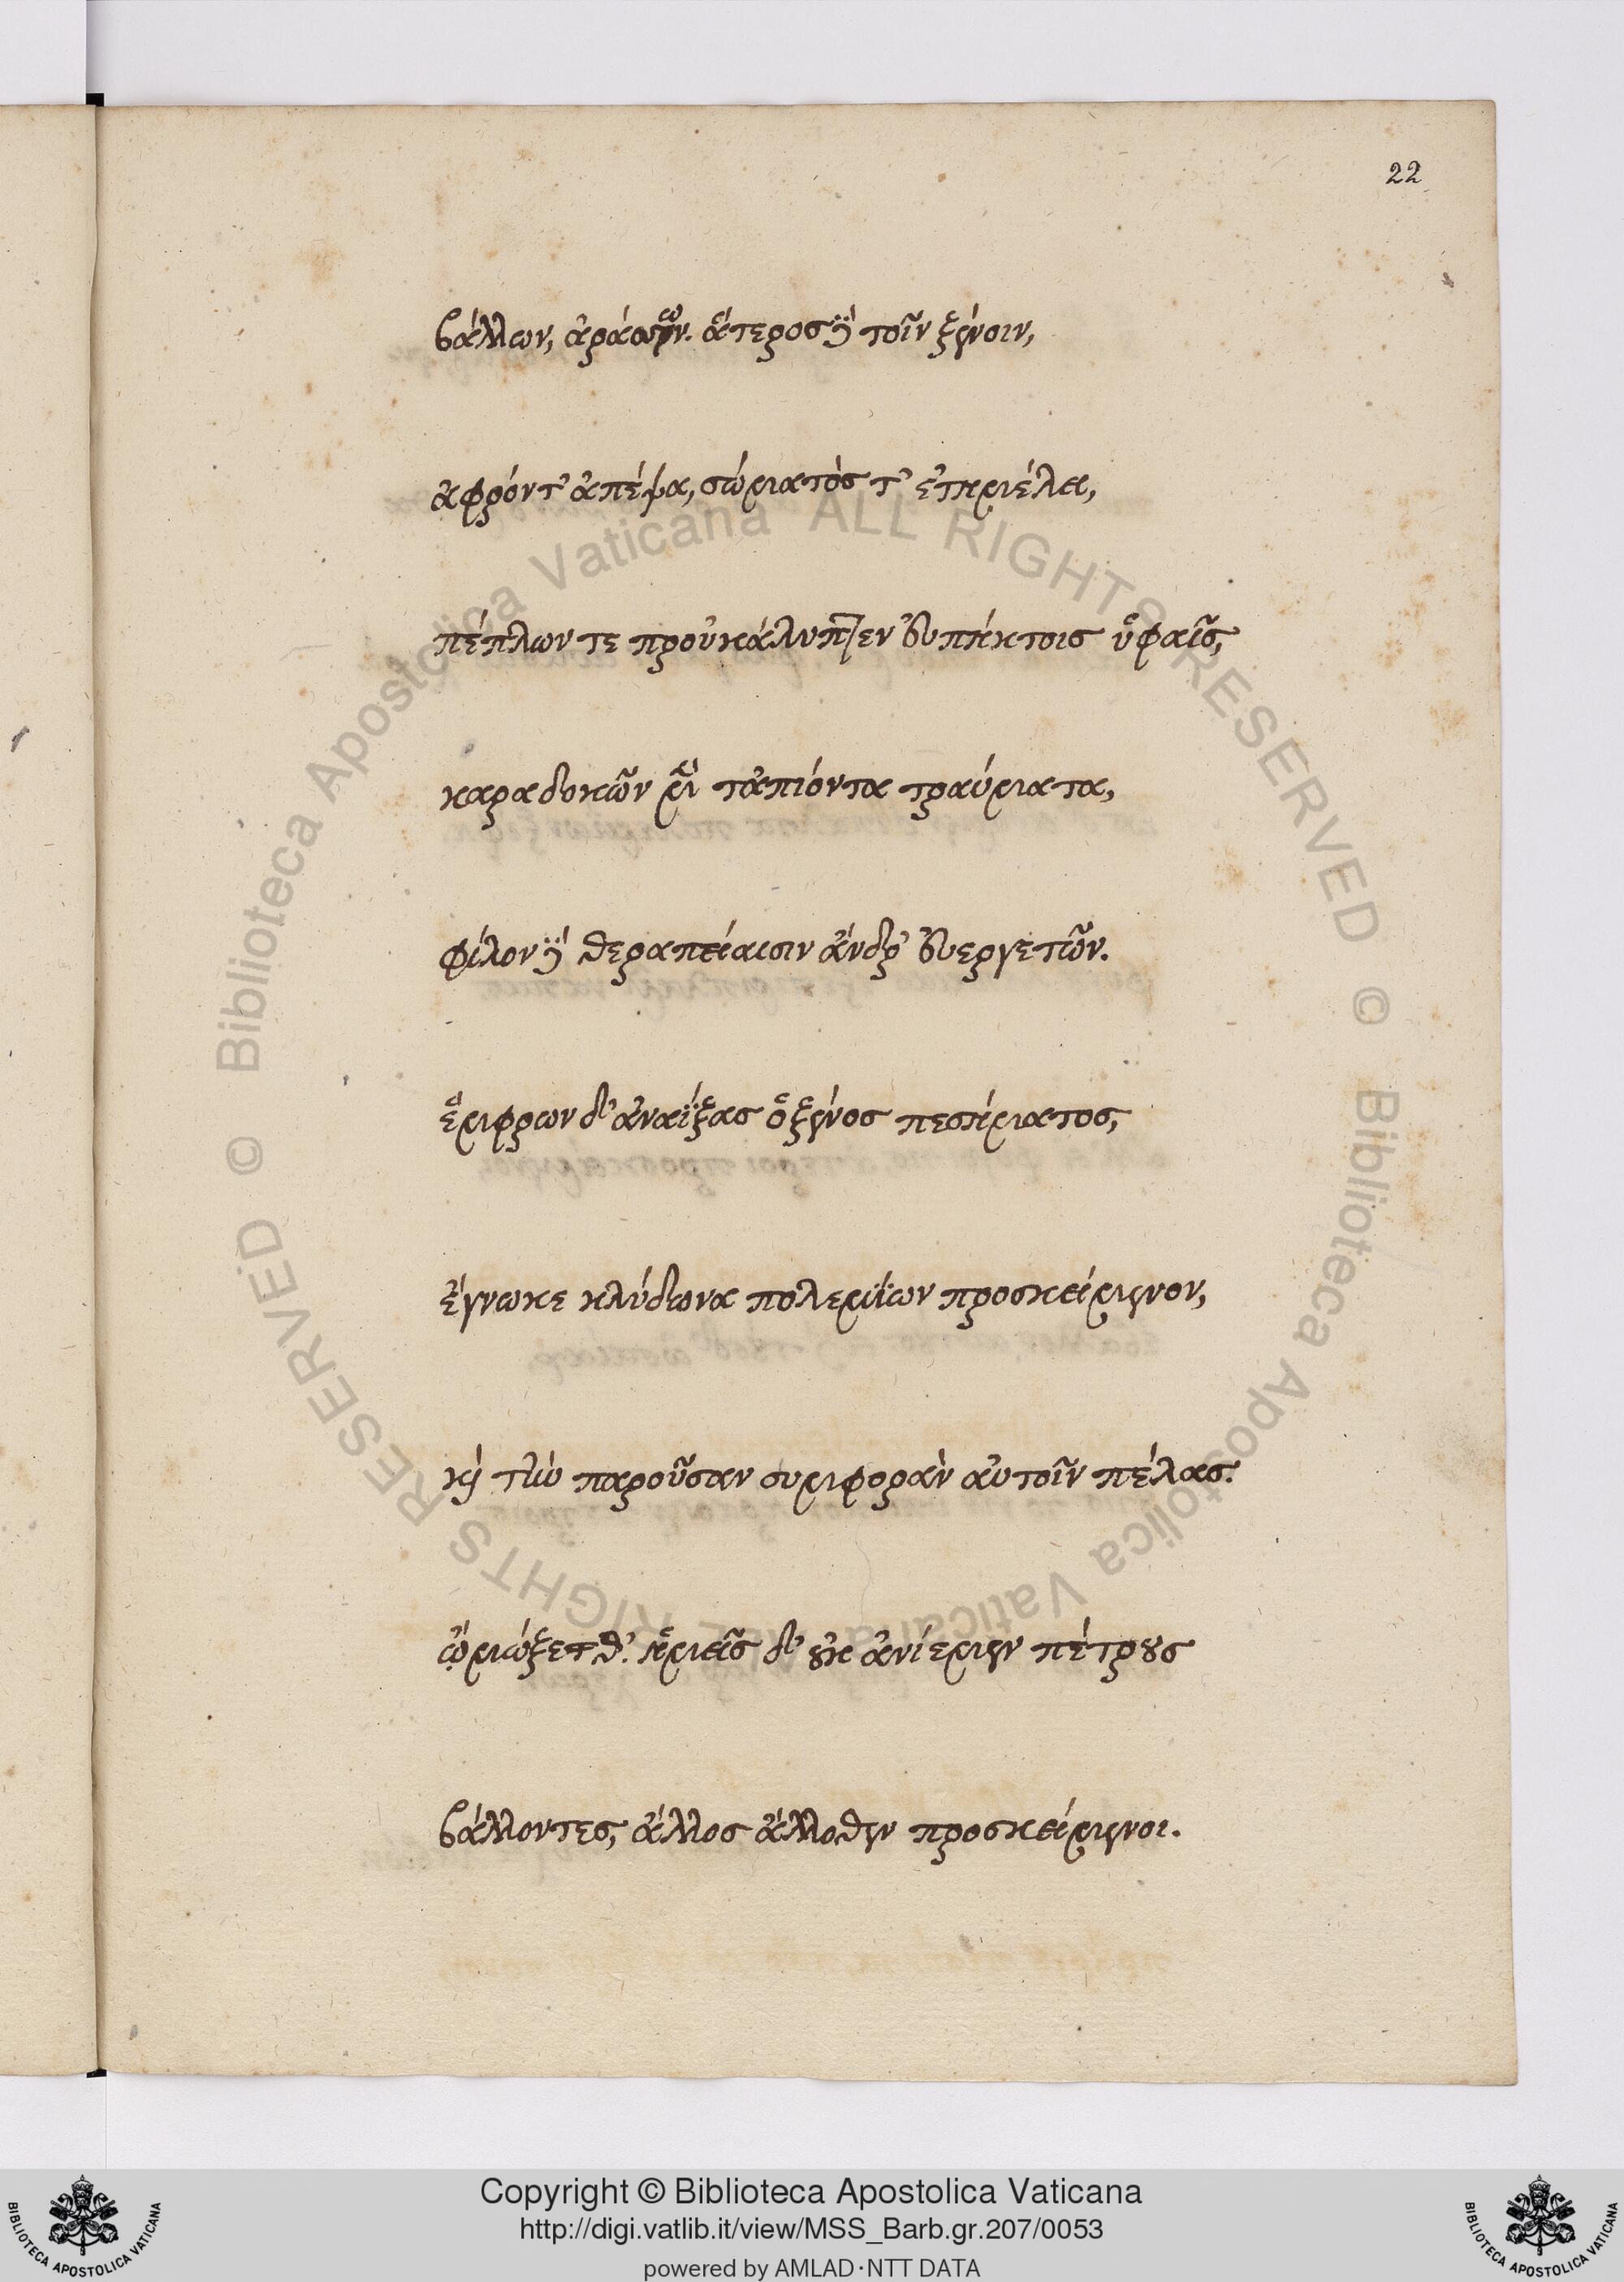 22
βάλλων, ἀράσσων. ἅτερος δὲ τοῖν ξένοιν,
ἀφρόν τ' ἀπέψα, σώματός τ' ἐτημέλει,
πέπλων τε προὐκάλυπτεν εὐπήκτοις ὑφαῖς,
καραδοκῶν μὲν τἀπιόντα τραύματα,
φίλον δὲ θεραπείαισιν ἄνδρ' εὐεργετῶν.
ἔμφρων δ' ἀναΐξας ὁ ξένος πεσήματος,
ἔγνωκε κλύδωνα πολεμίων προσκείμενον,
καὶ τὴν παροῦσαν συμφορὰν αὐτοῖν πέλας.
ᾤμωξέ θ'. ἡμεῖς δ' οὐκ ἀνίεμεν πέτρους
βάλλοντες, ἄλλος ἄλλοθεν προσκείμενοι.
Biblioteca Apostolica Vaticana ALL RIGHTS RESERVED ©
Biblioteca Apostolica Vaticana ALL RIGHTS RESERVED ©
Copyright © Biblioteca Apostolica Vaticana
http://digi.vatlib.it/view/MSS_Barb.gr.207/0053
powered by AMLAD·NTT DATA
BIBLIOTECA APOSTOLICA VATICANA
BIBLIOTECA APOSTOLICA VATICANA